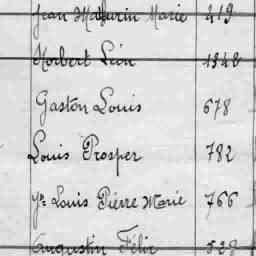 Jean Mathurin Marie 419
Norbert Léon 1348
Gaston Louis 678
Louis Prosper 782
Louis Pierre Marie 766
Augustin Félix 528